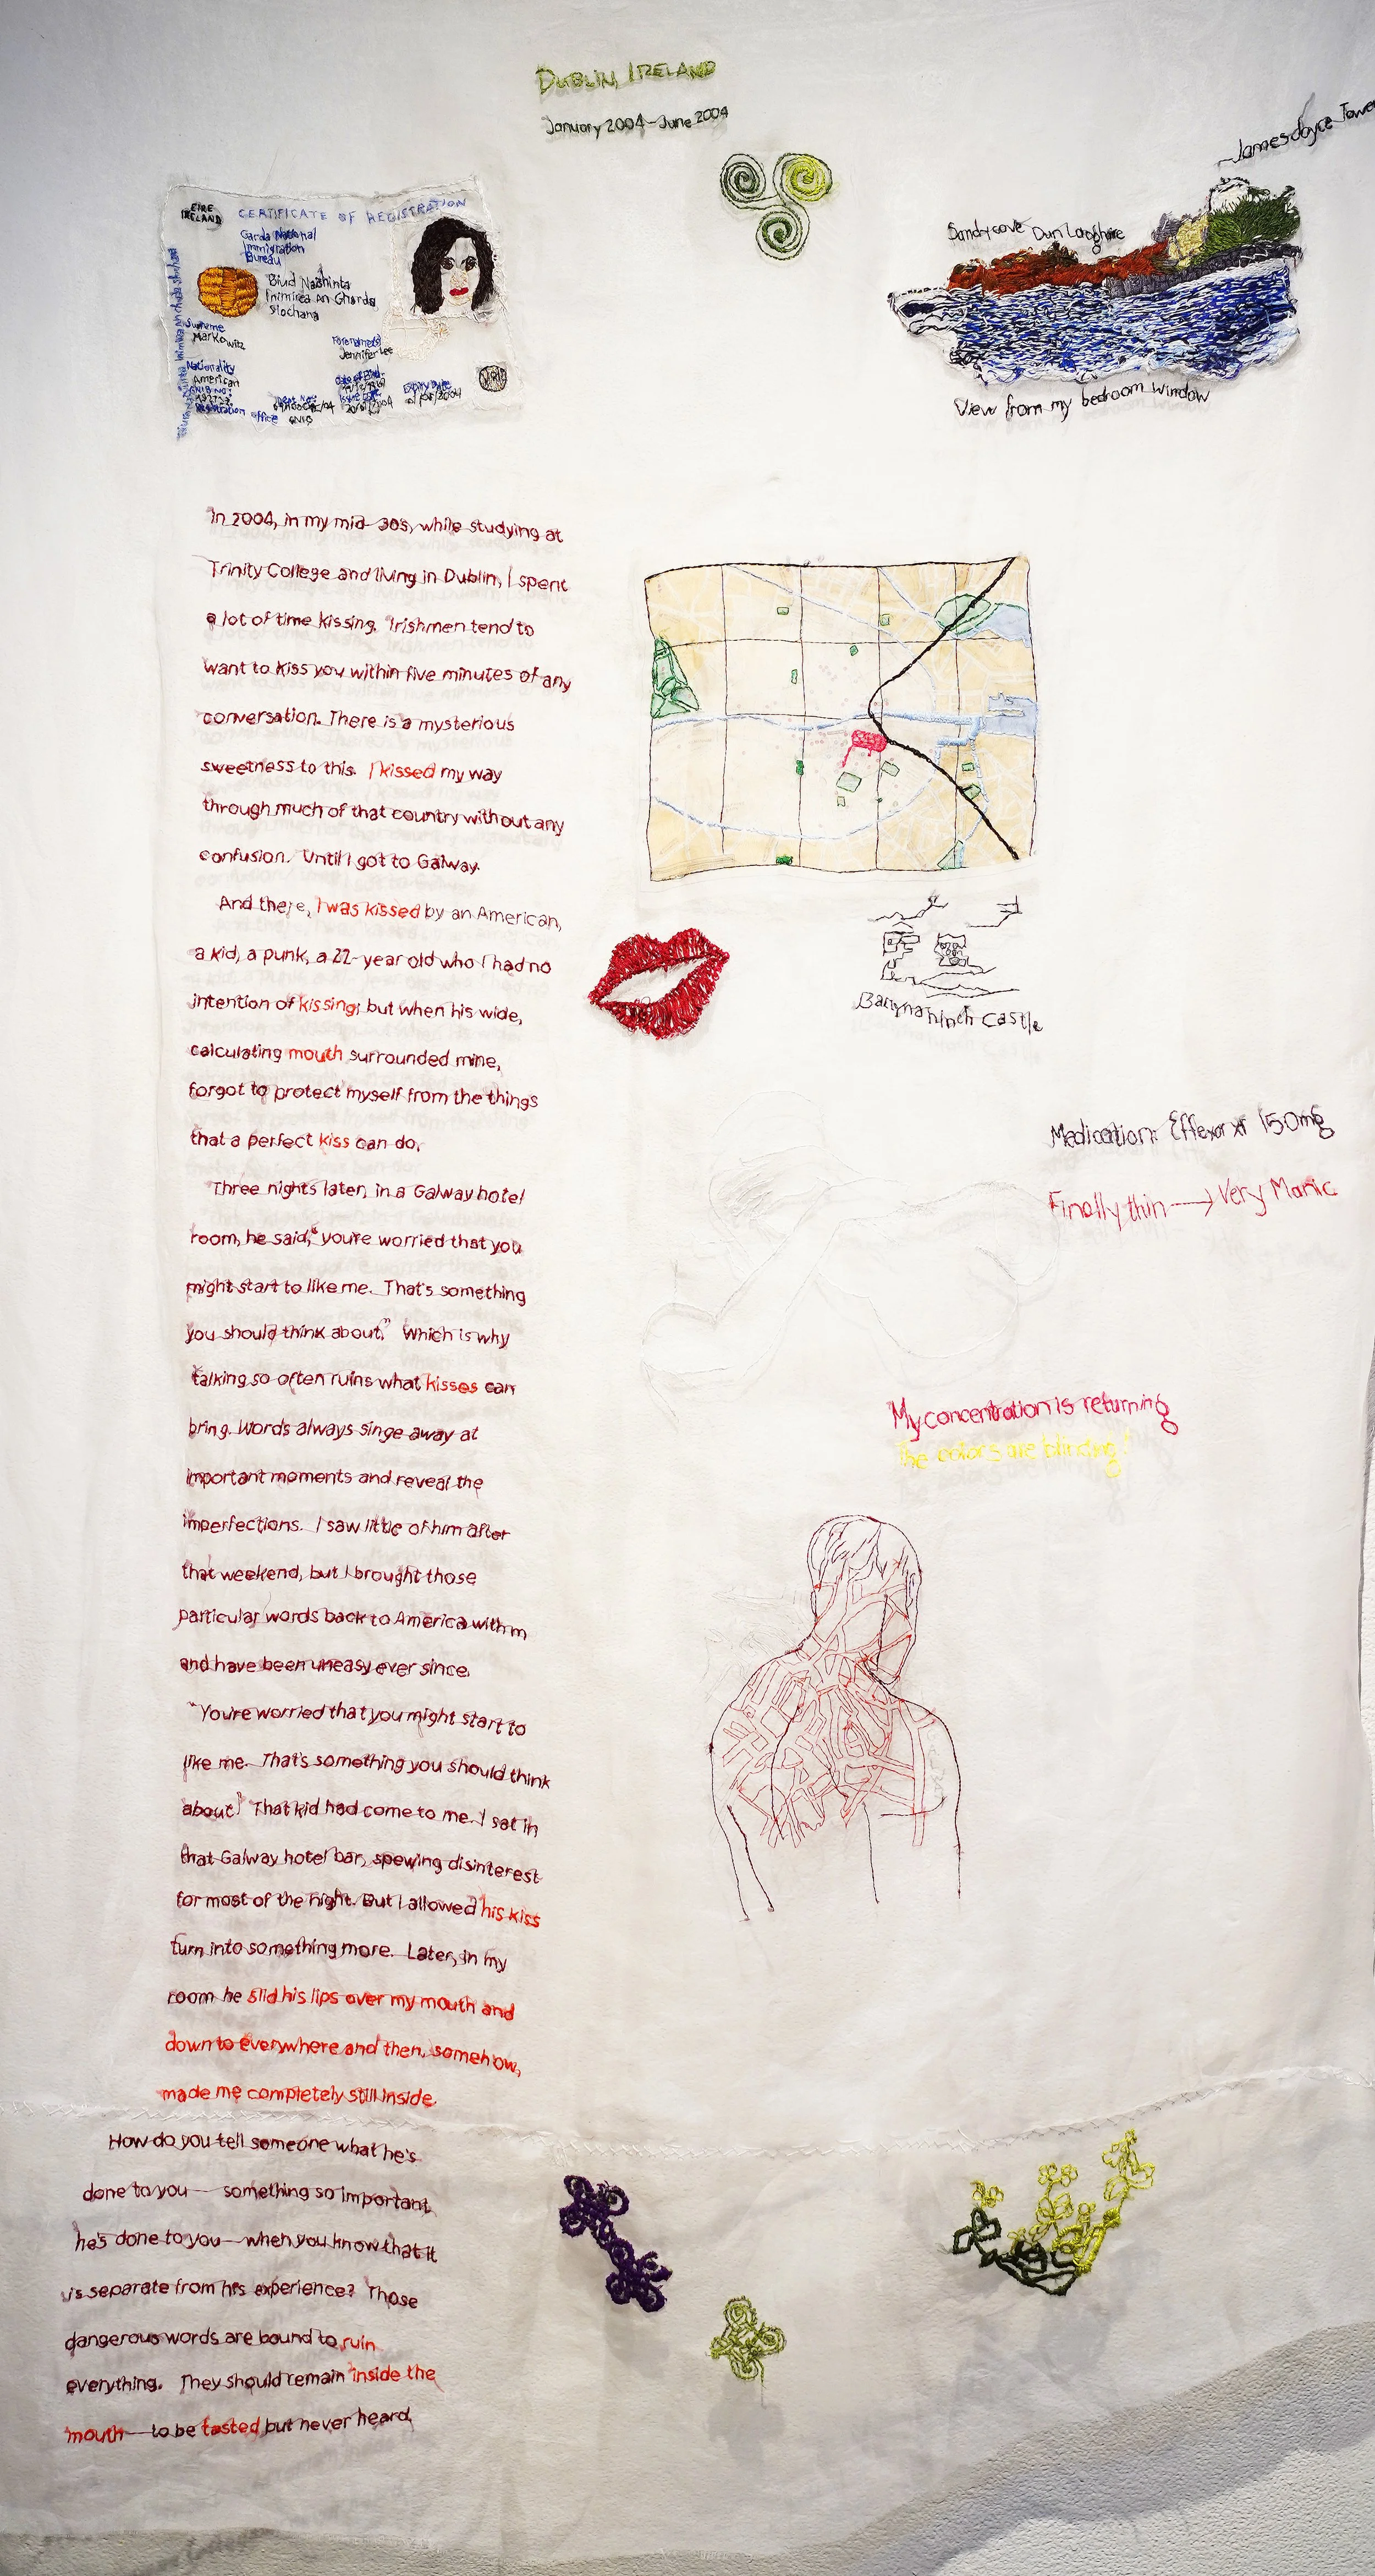 DUBLIN, IRELAND
January 2004-June 2004
James Joyce Tower
Sandycove Dun Laoghaire
View from my bedroom window
EIRE
IRELAND
CERTIFICATE OF REGISTRATION
Garda National
Immigration
Bureau
Biúd Naisiúnta
Inimirce An Gharda
Siochana
Surname
Markowitz
Forename(s)
Jennifer Lee
Nationality
American
Date of Birth
Expiry Date
Registration Office
GNIB
In 2004, in my mid-30s, while studying at
Trinity College and living in Dublin, I spent
a lot of time kissing. Irishmen tend to
want to kiss you within five minutes of any
conversation. There is a mysterious
sweetness to this. I kissed my way
through much of that country without any
confusion. Until I got to Galway.
And there, I was kissed by an American,
a kid, a punk, a 22-year old who I had no
intention of kissing; but when his wide,
calculating mouth surrounded mine,
forgot to protect myself from the things
that a perfect kiss can do.
Three nights later, in a Galway hotel
room, he said, "you're worried that you
might start to like me. That's something
you should think about." Which is why
talking so often ruins what kisses can
bring. Words always singe away at
important moments and reveal the
imperfections. I saw little of him after
that weekend, but I brought those
particular words back to America with m
and have been uneasy ever since.
"You're worried that you might start to
like me. That's something you should think
about." That kid had come to me. I sat in
that Galway hotel bar, spewing disinterest
for most of the night. But I allowed his kiss
turn into something more. Later, in my
room he slid his lips over my mouth and
down to everywhere and then, somehow,
made me completely still inside.
How do you tell someone what he's
done to you— something so important
he's done to you—when you know that it
is separate from his experience? Those
dangerous words are bound to ruin
everything. They should remain inside the
mouth—to be tasted but never heard.
Ballynahinch Castle
Medication: Effexor xr 150mg
Finally thin → Very Manic
My concentration is returning
The colors are blinding!